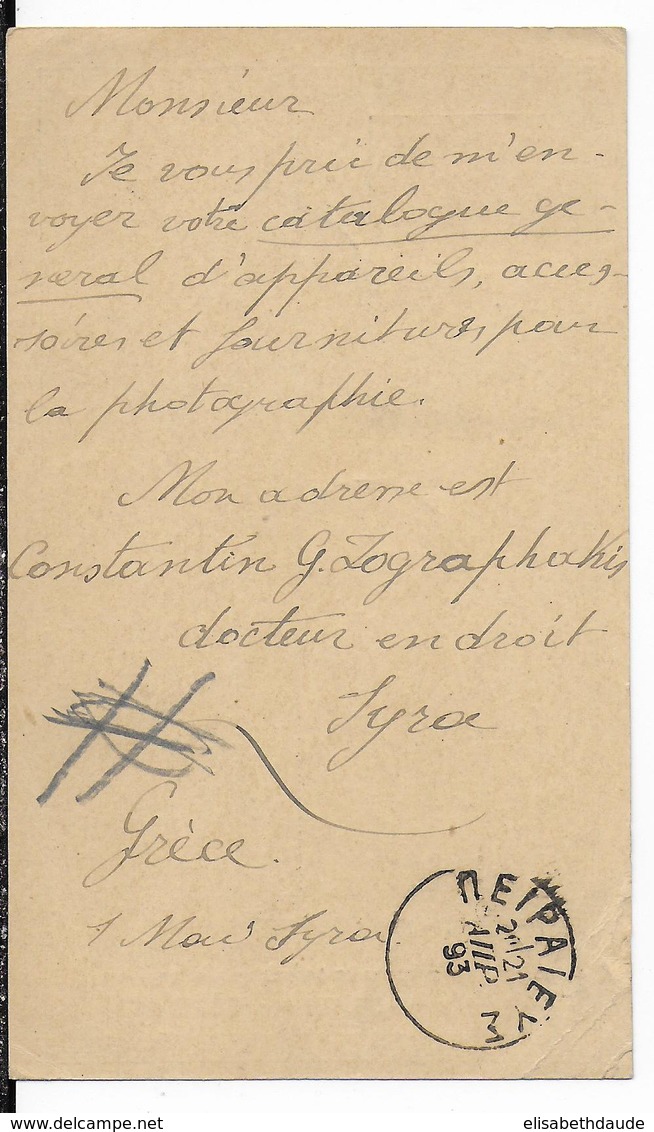 Monsieur
Je vous prie de m'en-
voyer votre catalogue ge-
neral d'appareils, acces-
soires et fournitures pour
la photographie.
Mon adresse est
Constantin G. Zographakis
docteur en droit
Syra
Grèce.
1 Mai Syra.
ΠΕΙΡΑΙΕΥΣ
21
ΑΠΡ
93
elisabethdaude